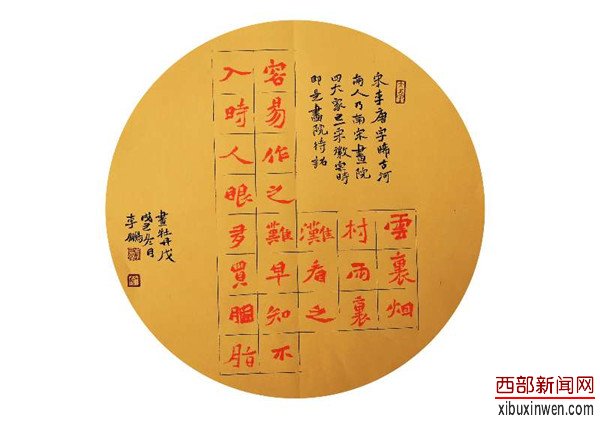 宋李唐字晞古河
南人乃南宋畫院
四大家之一宋徽宗時
即是畫院待詔
雲裏烟
村雨裏
灘看之
容易作之難早知不
入時人眼多買臙脂
畫牡丹戊
戌冬月
李鵬
西部新闻网
xibuxinwen.com